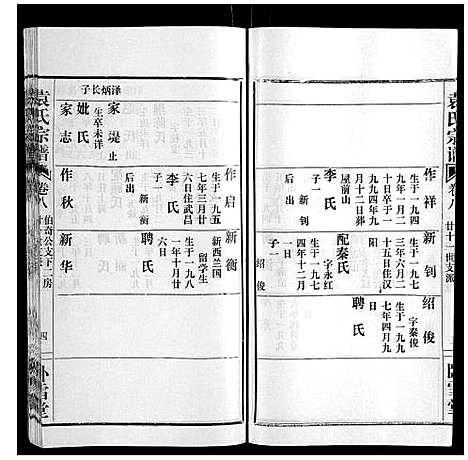 袁氏宗谱
卷八
廿十一世支派
作祥
生于一九四
九年一月二
十九日殁一
九九四年九
月十二日葬
屋前山
子一
新钊
生于一九七
三年六月二
十五日住汉
阳
配秦氏
字永红
生于一九七
四年十二月
一日
子一
绍俊
绍俊
字秦俊
生于一九九
七年四月九
日
聘氏
作启
生于一九五
七年三月廿
六日住武昌
李氏
子一
新衡
后出
新衡
新西兰国
留学生
生于一九八
一年十月廿
聘氏
泽炳长子
家堤止
生卒未详
妣氏
家志
作秋
后出
新华
袁氏宗谱
卷八
伯奇公支下二房
四
卧雪堂